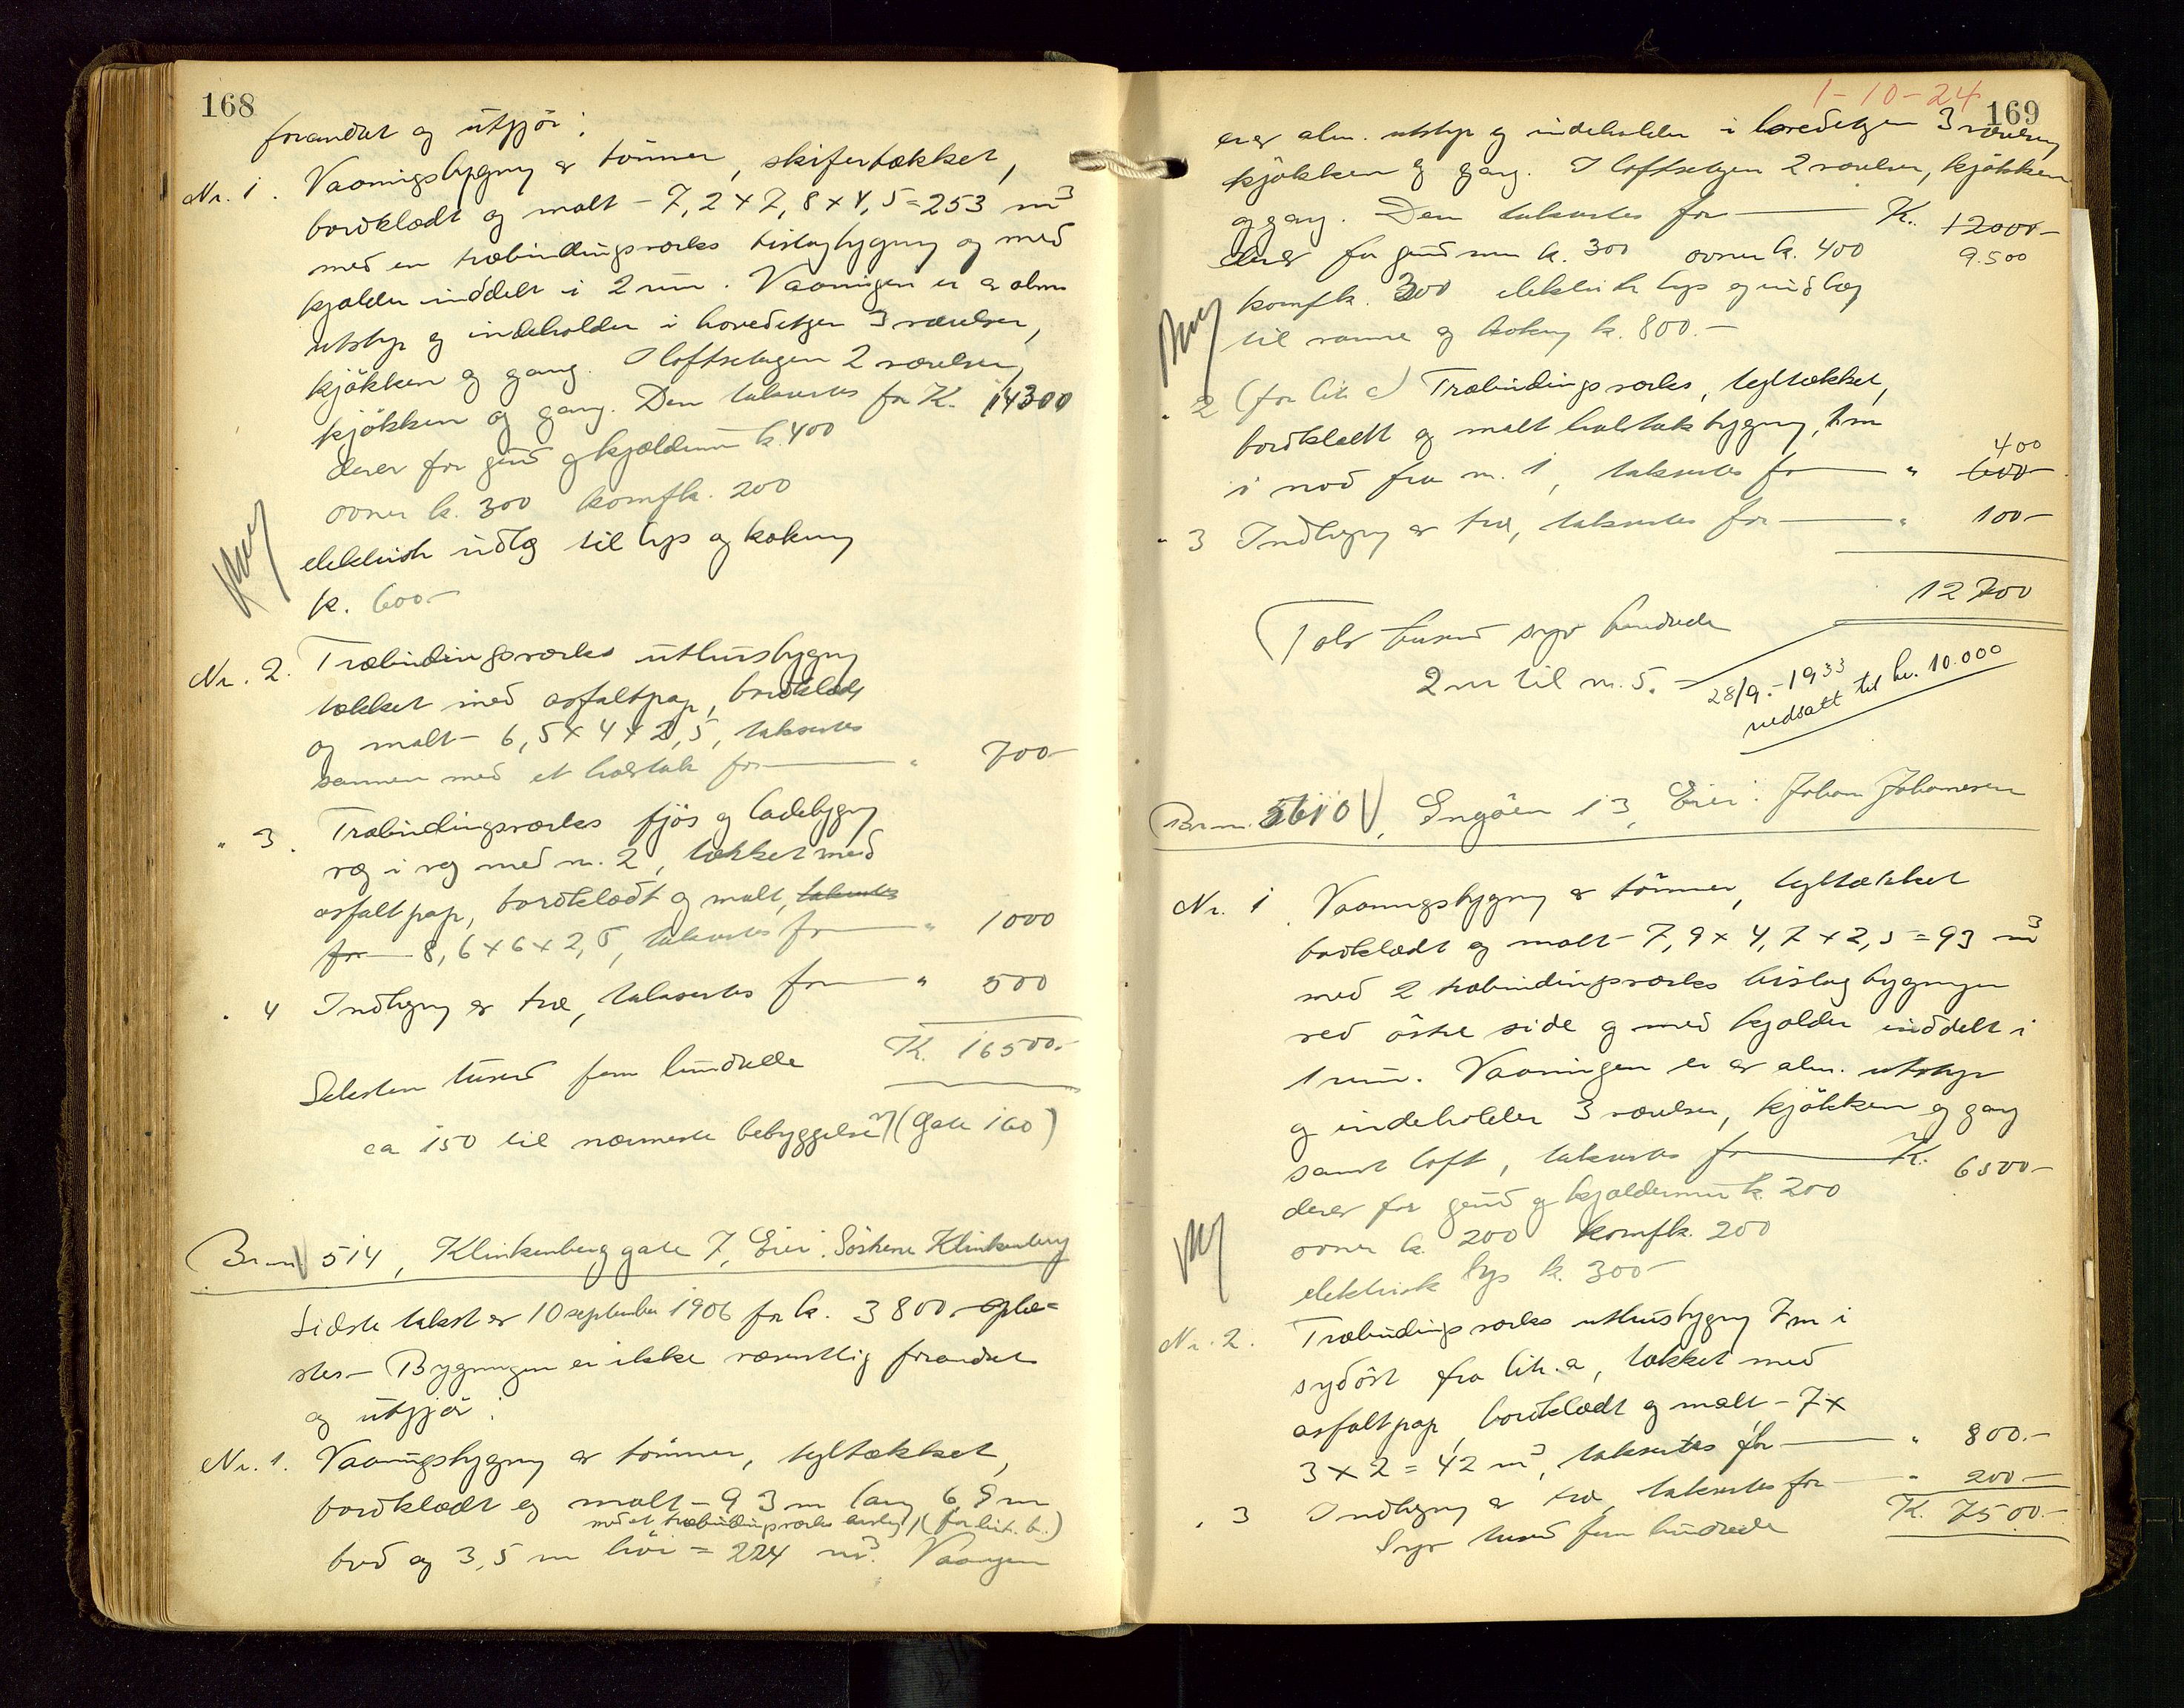 168
forandret og utgjør:
Nr. 1. Vaaningsbygng av tømmer, skifertækket,
bordklædt og malt – 7,2 x 7,8 x 4,5 = 253 m3
med en træbindingsværks bislagbygning og med
kjælder inddelt i 2 rum. Vaaningen er av alm
utstyr og indeholder i hovedetagen 3 værelser,
kjøkken og gang. I loftsetagen 2 værelser,
kjøkken og gang. Den takseres for K. 14300
derav for grund og kjældermur k. 400
ovner k. 300 komf k. 200
elektrisk indlæg til lys og kokning
k. 600-
Nr. 2. Træbindingsværks uthusbygng
tækket med asfaltpap, bordklædt
og malt – 6,5 x 4 x 2,5, takseres
sammen med et halvtak for — " 700-
" 3. Træbindingsværks fjøs og ladebygng
væg i væg med nr. 2, tækket med
asfaltpap, bordklædt og malt, takseres
for — 8,6 x 6 x 2,5, takseres for — " 1000
" 4 Indhegng av træ, takseres for — " 500
K. 16500.-
Seksten tusend fem hundrede
ca 150 til nærmeste bebyggelse (Gate 160)
Br.nr 514, Klinkenberg gate 7, Eier: Søskene Klinkenberg
Sidste takst av 10 september 1906 for k. 3800 oplæ-
stes – Bygningen er ikke væsentlig forandret
og utgjør:
Nr. 1. Vaaningsbygng av tømmer, tegltækket,
bordklædt og malt – 9,3 m lang 6,9 m
med et træbindingsværks bislag, (for lit. b.)
bred og 3,5 m høi = 224 m3. Vaaningen
1-10-24
169
er av alm. utstyr og indeholder i hovedetagen 3 værelser,
kjøkken og gang. I loftsetagen 2 værelser, kjøkken
og gang. Den takseres for — K. 12000-
9.500
derav for grundmur k. 300 ovner k. 400
komf k. 300 elektrisk lys og indlæg
til varme og kokng k. 800.-
" 2 (for lit c) Træbindingsværks, tegltækket,
bordklædt og malt halvtakbygng, 1 m
400
i nord fra nr. 1, takseres for — " 600-
" 3 Indhegng av træ, takseres for — " 100-
12700
Tolv tusend syv hundrede
2 m til nr. 5.
28/9.-1933
nedsatt til kr. 10.000
Br.nr. 5610, Engøen 13, Eier: Johan Johannesen
Nr. 1 Vaaningsbygng av tømmer, tegltækket
bordklædt og malt – 7,9 x 4,7 x 2,5 = 93 m3
med 2 træbindingsværks bislagbygninger
ved østre side og med kjælder inddelt i
1 rum. Vaaningen er av alm. utstyr
og indeholder 3 værelser, kjøkken og gang
samt loft, takseres for — K. 6500-
derav for grund og kjældermur k. 200
ovner k. 200 komf k. 200
elektrisk lys k. 300-
Nr. 2. Træbindingsværks uthusbygng 7 m i
sydøst fra lit. a, tækket med
asfaltpap, bordklædt og malt – 7 x
3 x 2 = 42 m3, takseres for — " 800.-
" 3 Indhegng av træ, takseres for — " 200-
K. 7500.-
Syv tusend fem hundrede